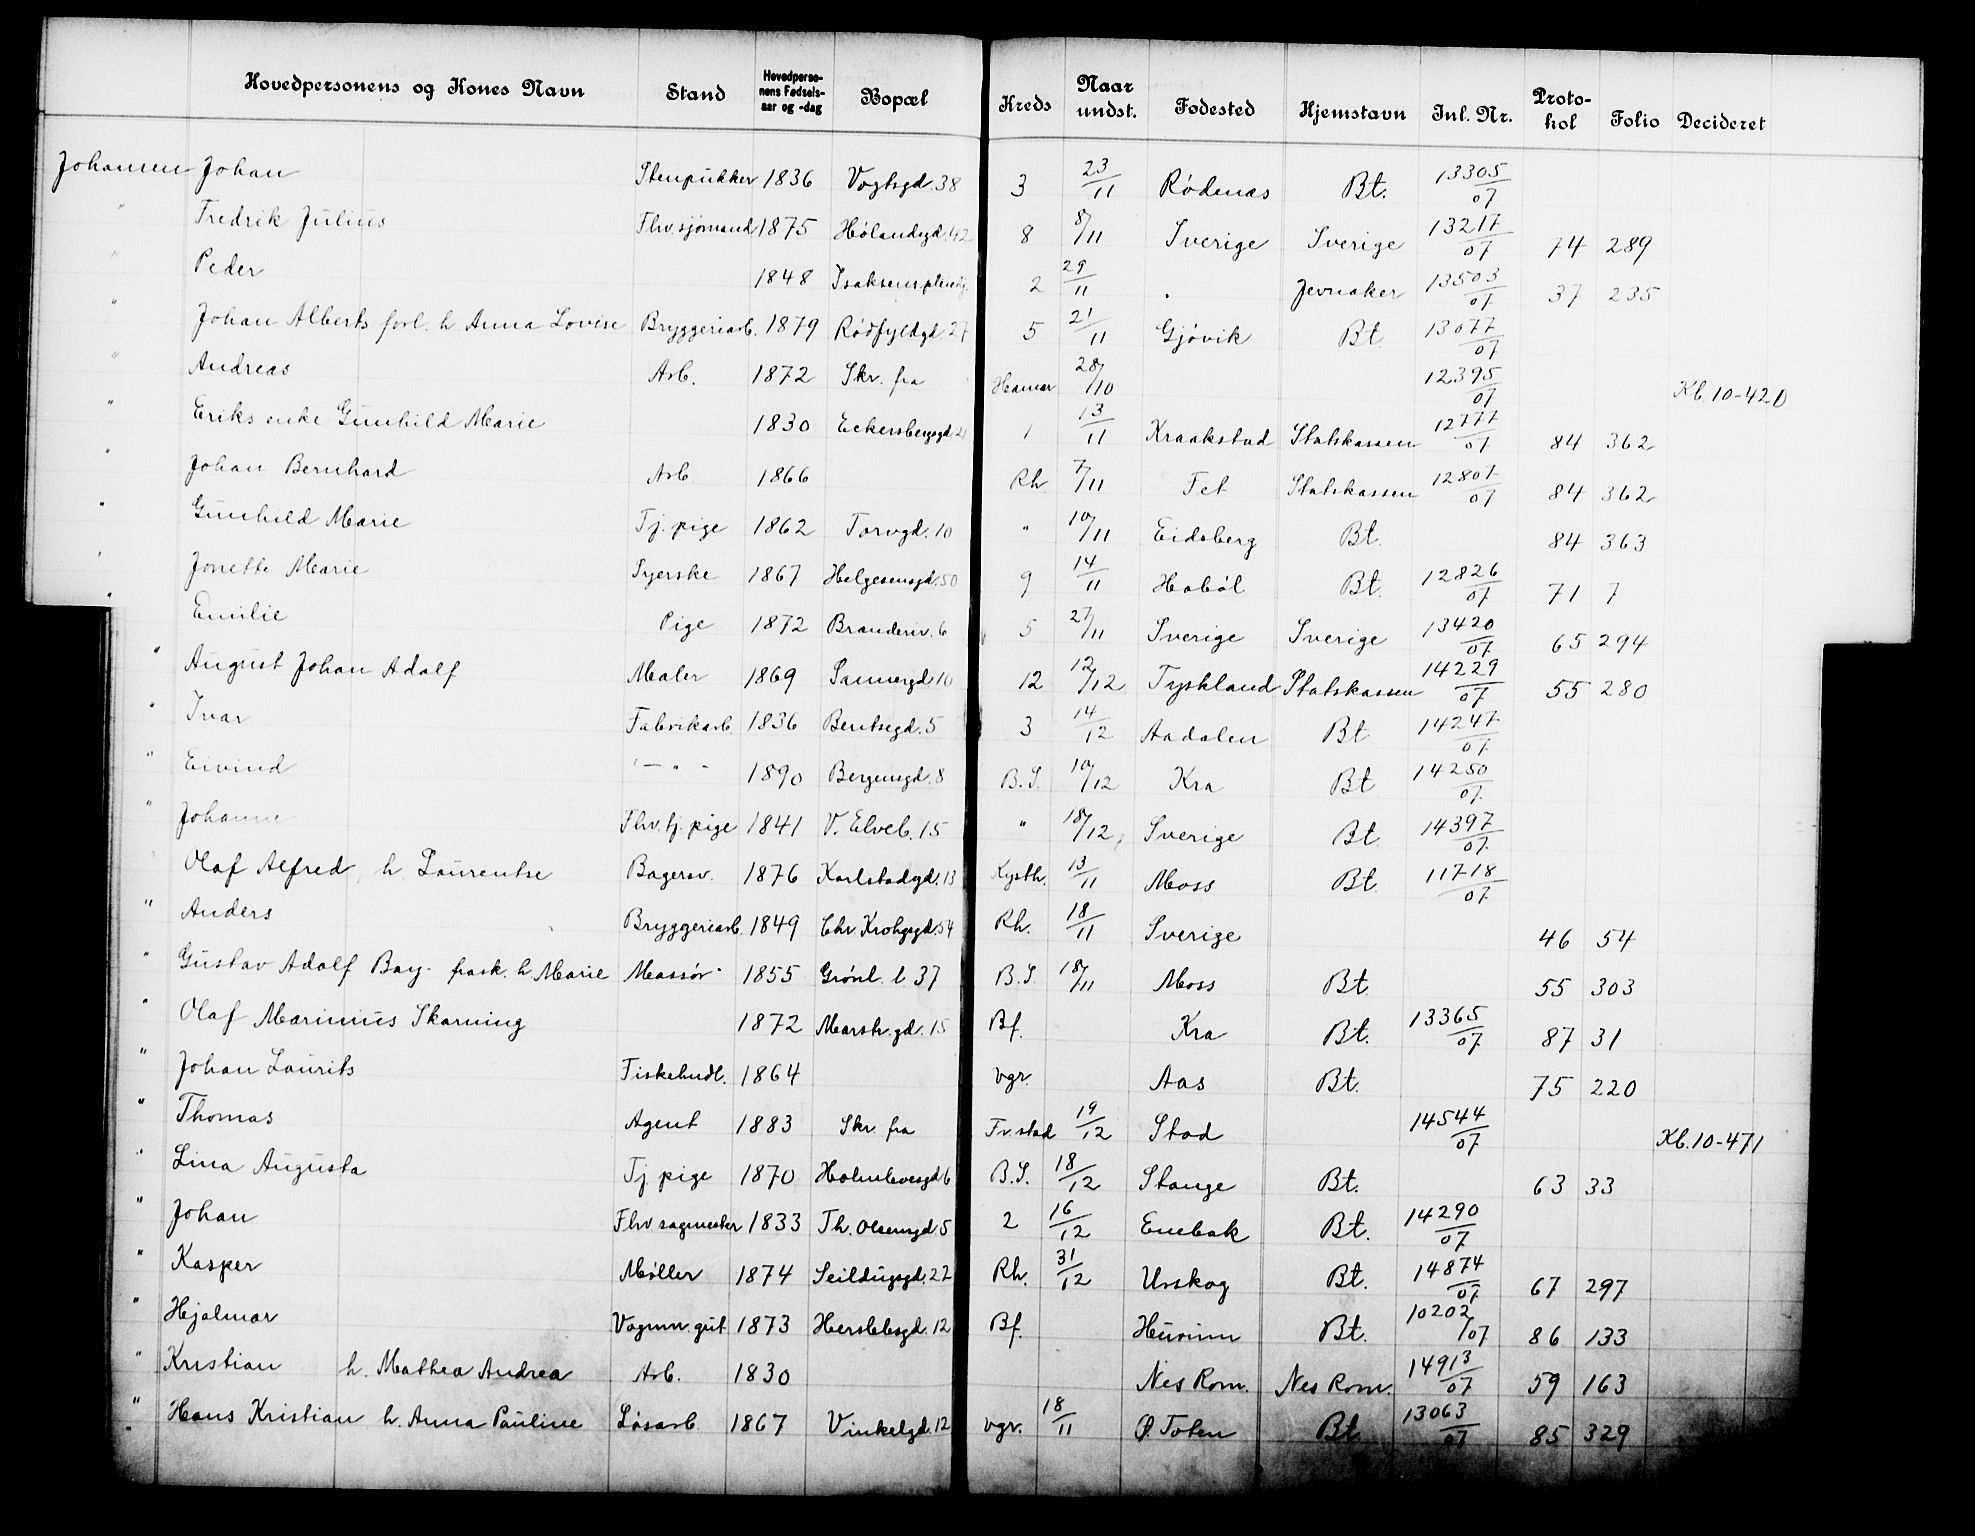 Hovedpersonens og Kones Navn | Stand | Hovedpersonens Fødselsaar og -dag | Bopæl | Kreds | Naar undst. | Fødested | Hjemstavn | Inl. Nr. | Protokol | Folio | Decideret
Johansen Johan | Stenpukker | 1836 | Vogtsgd. 38 | 3 | 23/11 | Rødenæs | Bt. | 13305/07
" Fredrik Julius | Fhv. sjømand | 1875 | Hølandsgd. 42 | 8 | 8/11 | Sverige | Sverige | 13217/07 | 74 | 289
" Peder | 1848 | Isaksens pleiehj. | 2 | 29/11 | . | Jevnaker | 13503/07 | 37 | 235
" Johan Alberts forl. h. Anna Lovise | Bryggeriarb. | 1879 | Rødfyldgd. 27 | 5 | 21/11 | Gjøvik | Bt. | 13077/07
" Andreas | Arb. | 1872 | Skr. fra | Hamar | 28/10 | 12395/07 | Kb. 10-420
" Eriks enke Gunhild Marie | 1830 | Eckersbergsgd. 21 | 1 | 13/11 | Kraakstad | Statskassen | 12777/07 | 84 | 362
" Johan Bernhard | Arb | 1866 | Rh | 7/11 | Fet | Statskassen | 12807/07 | 84 | 362
" Gunhild Marie | Tj. pige | 1862 | Torvgd. 10 | " | 10/11 | Eidsberg | Bt. | 84 | 363
" Jonette Marie | Syerske | 1867 | Helgesensgd. 50 | 9 | 14/11 | Hobøl | Bt. | 12826/07 | 71 | 7
" Emilie | Pige | 1872 | Branderiv. 6 | 5 | 27/11 | Sverige | Sverige | 13420/07 | 65 | 294
" August Johan Adolf | Maler | 1869 | Sannergd. 10 | 12 | 12/12 | Tyskland | Statskassen | 14229/07 | 55 | 280
" Ivar | Fabrikarb. | 1836 | Bentsegd. 5 | 3 | 14/12 | Aadalen | Bt. | 14247/07
" Eivind | - " - | 1890 | Bergensgd. 8 | B. S. | 10/12 | Kra | Bt | 14250/07.
" Johanne | Fhv. tj. pige | 1841 | V. Elveb. 15 | " | 18/12 | Sverige | Bt. | 14397/07.
Olaf Alfred, h. Laurentse | Bagersv. | 1876 | Karlstadgd. 13 | Kysth. | 13/11 | Moss | Bt. | 11718/07.
" Anders | Bryggeriarb. | 1849 | Chr. Krohgsgd. 54 | Rh. | 18/11 | Sverige | 46 | 54
" Gustav Adolf Bay- frask. h. Marie | Massør | 1855 | Grønl. l. 37 | B. S. | 18/11 | Moss | Bt. | 55 | 303
" Olaf Marinius Skarning | 1872 | Marsh. gd. 15 | Bf. | Kra | Bt. | 13365/07 | 87 | 31
" Johan Laurits | Fiskehndl. | 1864 | vgr. | Aas | Bt. | 75 | 220
" Thomas | Agent | 1883 | Skr. fra | Fr.stad | 19/12 | Stod | 14544/07 | Kb. 10-471
" Lina Augusta | Tj. pige | 1870 | Holmboesgd 6 | B. S. | 18/12 | Stange | Bt. | 63 | 33
" Johan | Fhv sagmester | 1833 | Th. Olsensgd. 5 | 2 | 16/12 | Enebak | Bt. | 14290/07
" Kasper | Møller | 1874 | Seildugsgd. 22 | Rh. | 31/12 | Urskog | Bt. | 14874/07 | 67 | 297
" Hjalmar | Vognm. gut | 1873 | Herslebsgd. 12 | Bf. | Hurum | Bt. | 10202/07 | 86 | 133
" Kristian h. Mathea Andrea | Arb. | 1830 | Nes Rom. | Nes Rom. | 14913/07 | 59 | 163
" Hans Kristian h. Anna Pauline | Løsarb. | 1867 | Vinkelgd. 12 | vgr. | 18/11 | Ø. Toten | Bt. | 13063/07 | 85 | 329